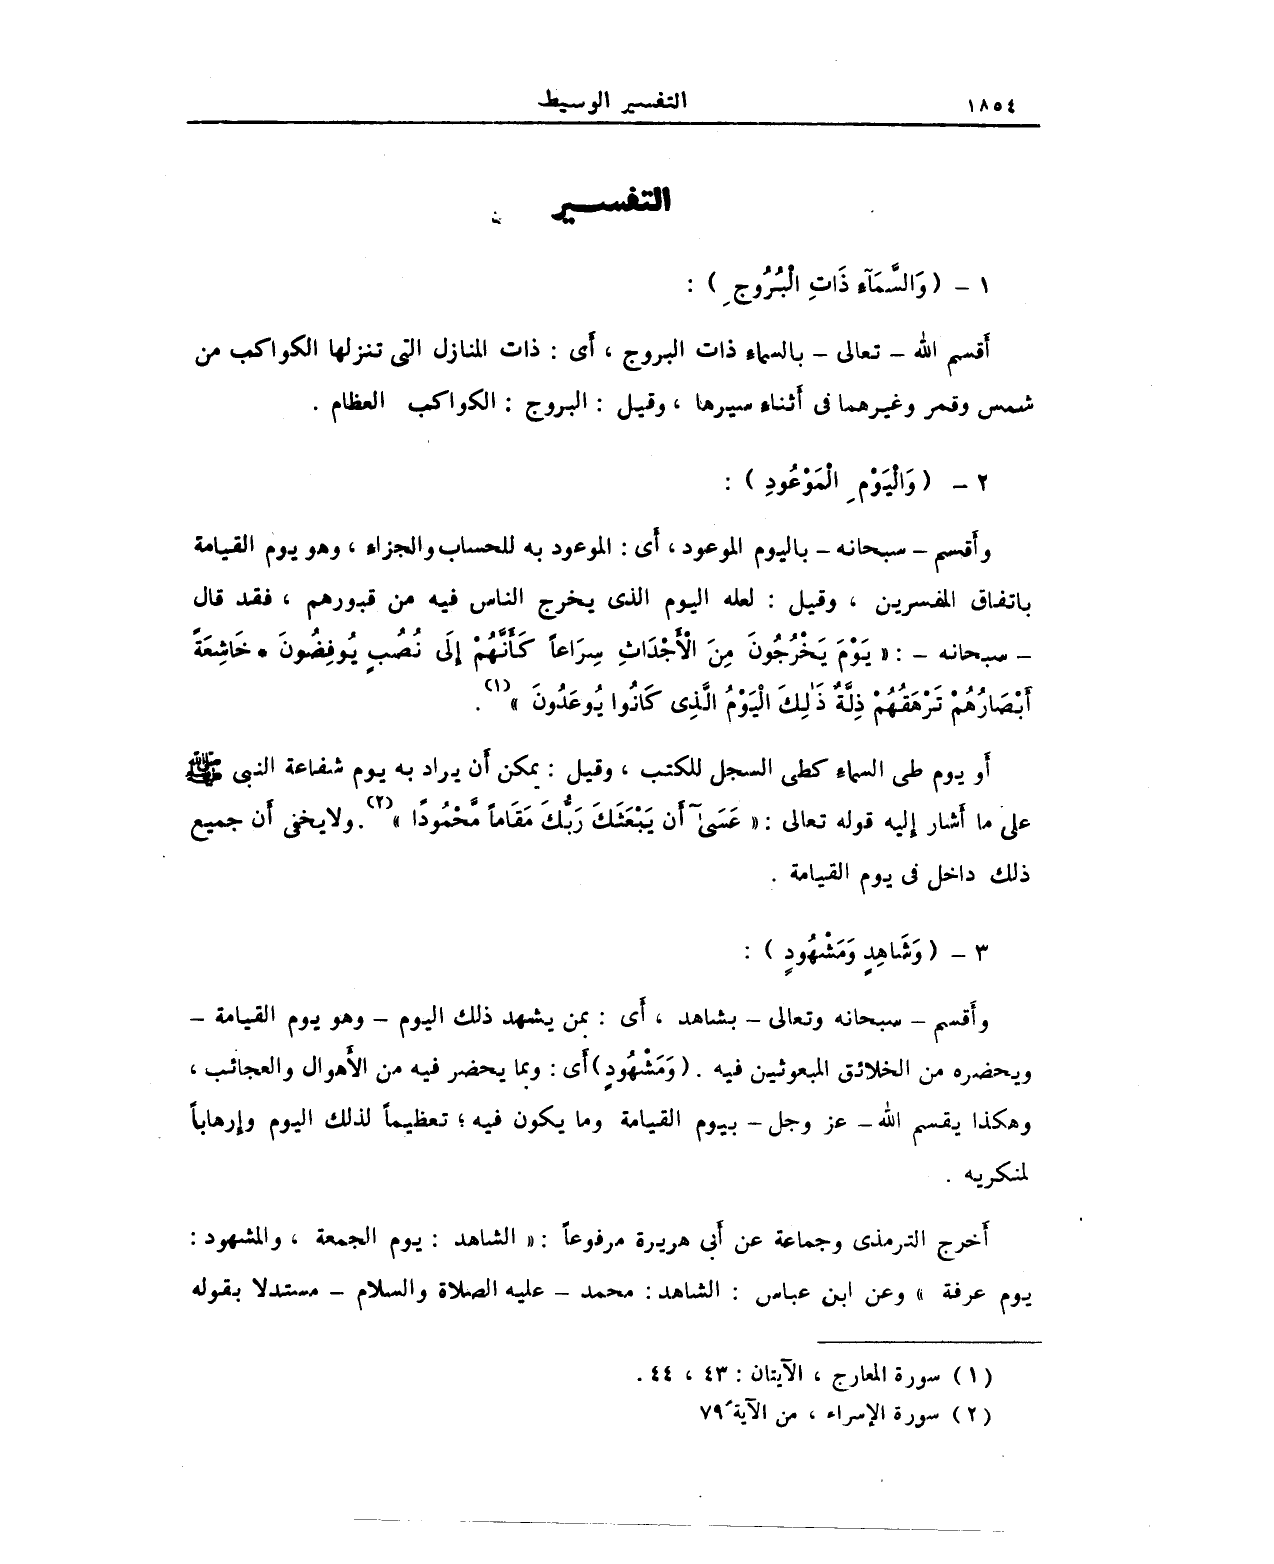 ١٨٥٤
التفسير الوسيط
التفسير
١ - ( وَالسَّمَآءِ ذَاتِ الْبُرُوجِ ) :
أقسم الله - تعالى - بالسماء ذات البروج ، أى : ذات المنازل التى تنزلها الكواكب من
شمس وقمر وغيرهما فى أثناء سيرها ، وقيل : البروج : الكواكب العظام .
٢ - ( وَالْيَوْمِ الْمَوْعُودِ ) :
وأقسم - سبحانه - باليوم الموعود ، أى : الموعود به للحساب والجزاء ، وهو يوم القيامة
باتفاق المفسرين ، وقيل : لعله اليوم الذى يخرج الناس فيه من قبورهم ، فقد قال
- سبحانه - : « يَوْمَ يَخْرُجُونَ مِنَ الْأَجْدَاثِ سِرَاعاً كَأَنَّهُمْ إِلَى نُصُبٍ يُوفِضُونَ * خَاشِعَةً
أَبْصَارُهُمْ تَرْهَقُهُمْ ذِلَّةٌ ذَٰلِكَ الْيَوْمُ الَّذِى كَانُوا يُوعَدُونَ »(١) .
أو يوم طى السماء كطى السجل للكتب ، وقيل : يمكن أن يراد به يوم شفاعة النبى ﷺ
على ما أشار إليه قوله تعالى : « عَسَىٰٓ أَن يَبْعَثَكَ رَبُّكَ مَقَاماً مَّحْمُودًا »(٢) . ولايخفى أن جميع
ذلك داخل فى يوم القيامة .
٣ - ( وَشَاهِدٍ وَمَشْهُودٍ ) :
وأقسم - سبحانه وتعالى - بشاهد ، أى : بمن يشهد ذلك اليوم - وهو يوم القيامة -
ويحضره من الخلائق المبعوثين فيه . ( وَمَشْهُودٍ ) أى : وبما يحضر فيه من الأهوال والعجائب ،
وهكذا يقسم الله - عز وجل - بيوم القيامة وما يكون فيه ؛ تعظيماً لذلك اليوم وإرهاباً
لمنكريه .
أخرج الترمذى وجماعة عن أبى هريرة مرفوعاً : « الشاهد : يوم الجمعة ، والمشهود :
يوم عرفة » وعن ابن عباس : الشاهد : محمد - عليه الصلاة والسلام - مستدلا بقوله
(١) سورة المعارج ، الآيتان : ٤٣ ، ٤٤ .
(٢) سورة الإسراء ، من الآية ٧٩